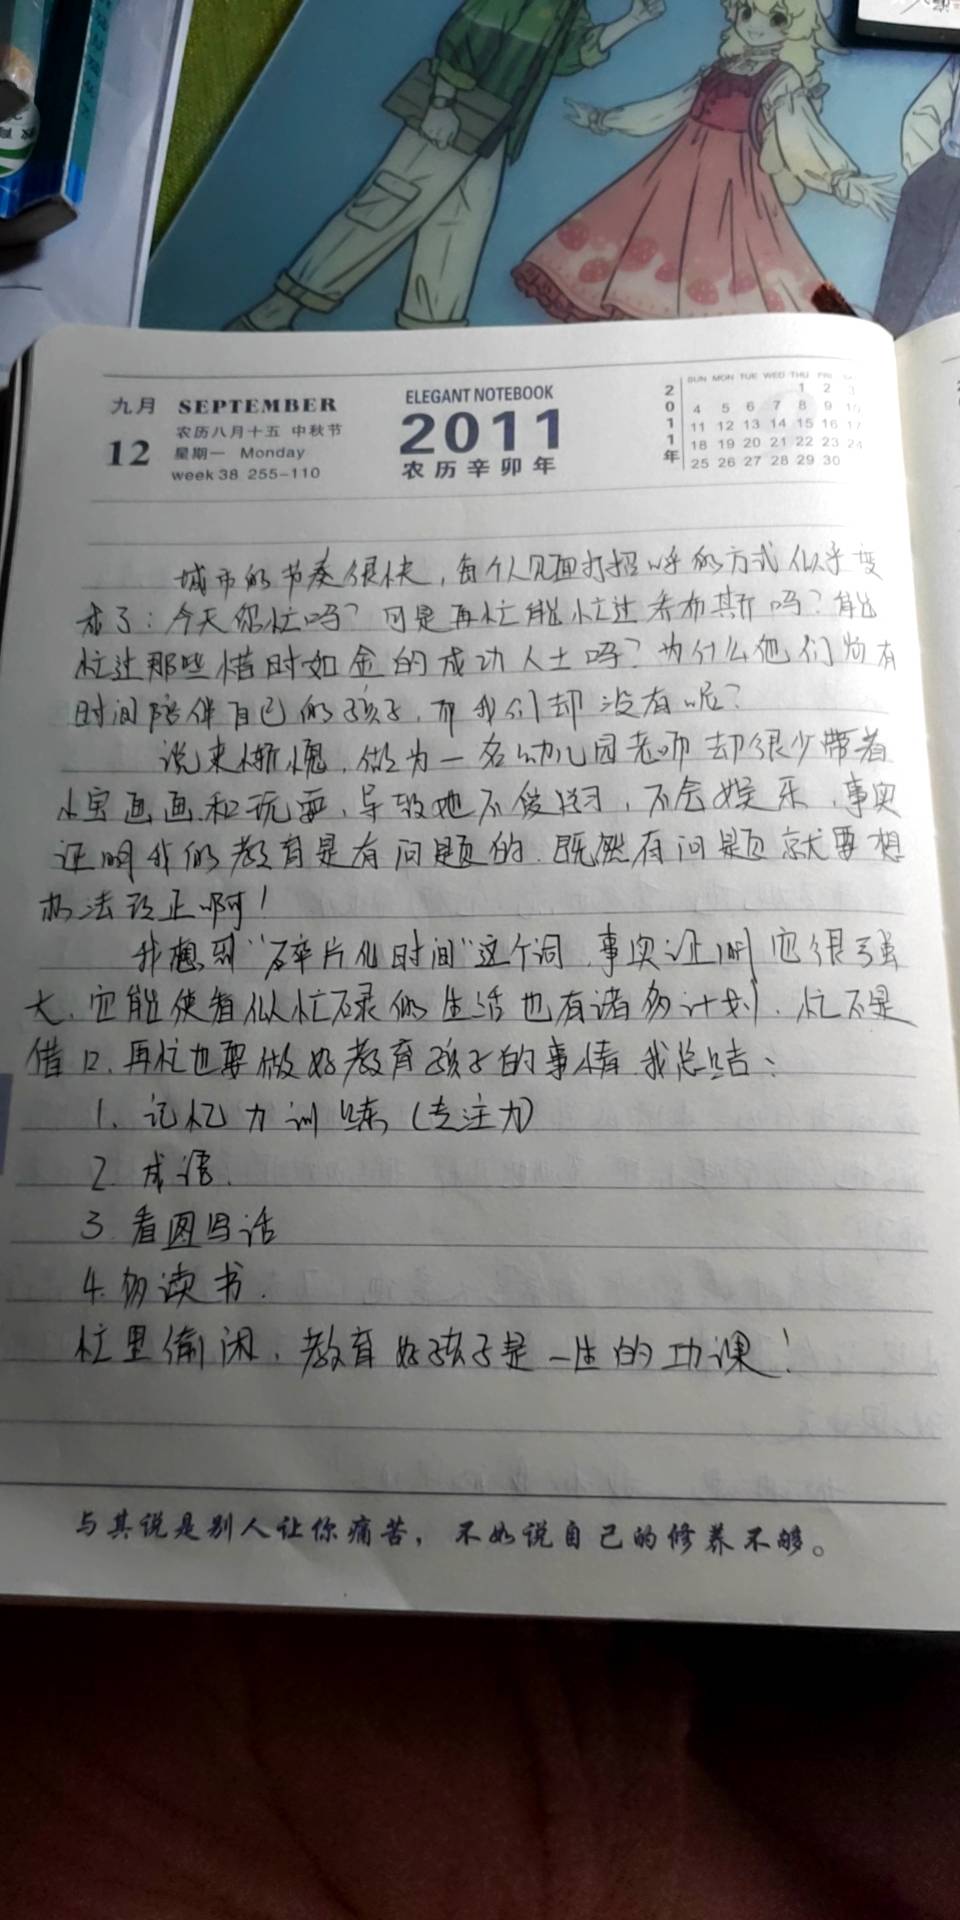 九月 SEPTEMBER
12
农历八月十五 中秋节
星期一 Monday
week 38 255-110
ELEGANT NOTEBOOK
2011
农历辛卯年
2011年
SUN MON TUE WED THU FRI
1 2 3
4 5 6 7 8 9 10
11 12 13 14 15 16 17
18 19 20 21 22 23 24
25 26 27 28 29 30
城市的节奏很快，每个人见面打招呼的方式似乎变
成了：今天你忙吗？可是再忙能忙过乔布斯吗？能
忙过那些惜时如金的成功人士吗？为什么他们均有
时间陪伴自己的孩子，而我们却没有呢？
说来惭愧，做为一名幼儿园老师却很少带着
小宝画画和玩耍，导致她不爱学习，不会娱乐，事实
证明我的教育是有问题的，既然有问题就要想
办法改正啊！
我想到“碎片化时间”这个词，事实证明它很强
大，它能使看似忙碌的生活也有诸多计划，忙不是
借口，再忙也要做好教育孩子的事情，我总结：
1. 记忆力训练（专注力）
2. 成语.
3. 看图写话
4. 多读书.
忙里偷闲，教育好孩子是一生的功课！
与其说是别人让你痛苦，不如说自己的修养不够。